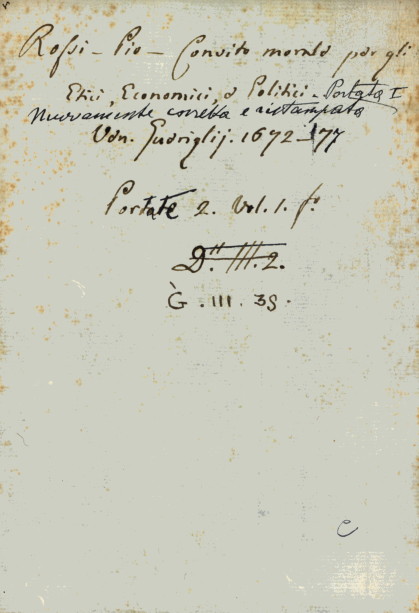 Rossi - Pio - Convito morale per gli
Etici, Economici, e Politici - Portata I
Nuovamente corretta e ristampata
Ven. Guerigli j. 1672 - 77
Portate 2. Vol. 1. fo
D. III. 2.
G. III. 39.
C